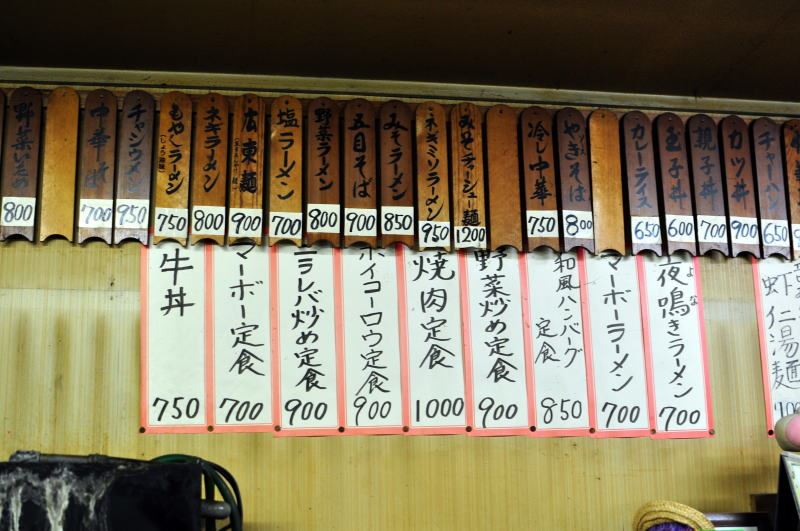 野菜いため
800
中華丼
700
チャンウメン
950
もやしラーメン
(しょう油味)
750
ネギラーメン
800
広東麺
900
塩ラーメン
700
野菜ラーメン
800
五目そば
900
みそラーメン
850
ネギミソラーメン
950
みそチャーシュー麺
1200
冷し中華
750
やきそば
800
カレーライス
650
玉子丼
600
親子丼
700
カツ丼
900
チャーハン
650
牛丼
750
マーボー定食
700
ニラレバ炒め定食
900
ホイコーロウ定食
900
焼肉定食
1000
野菜炒め定食
900
和風ハンバーグ
定食
850
マーボーラーメン
700
夜鳴きラーメン
よな
700
虾仁湯麺